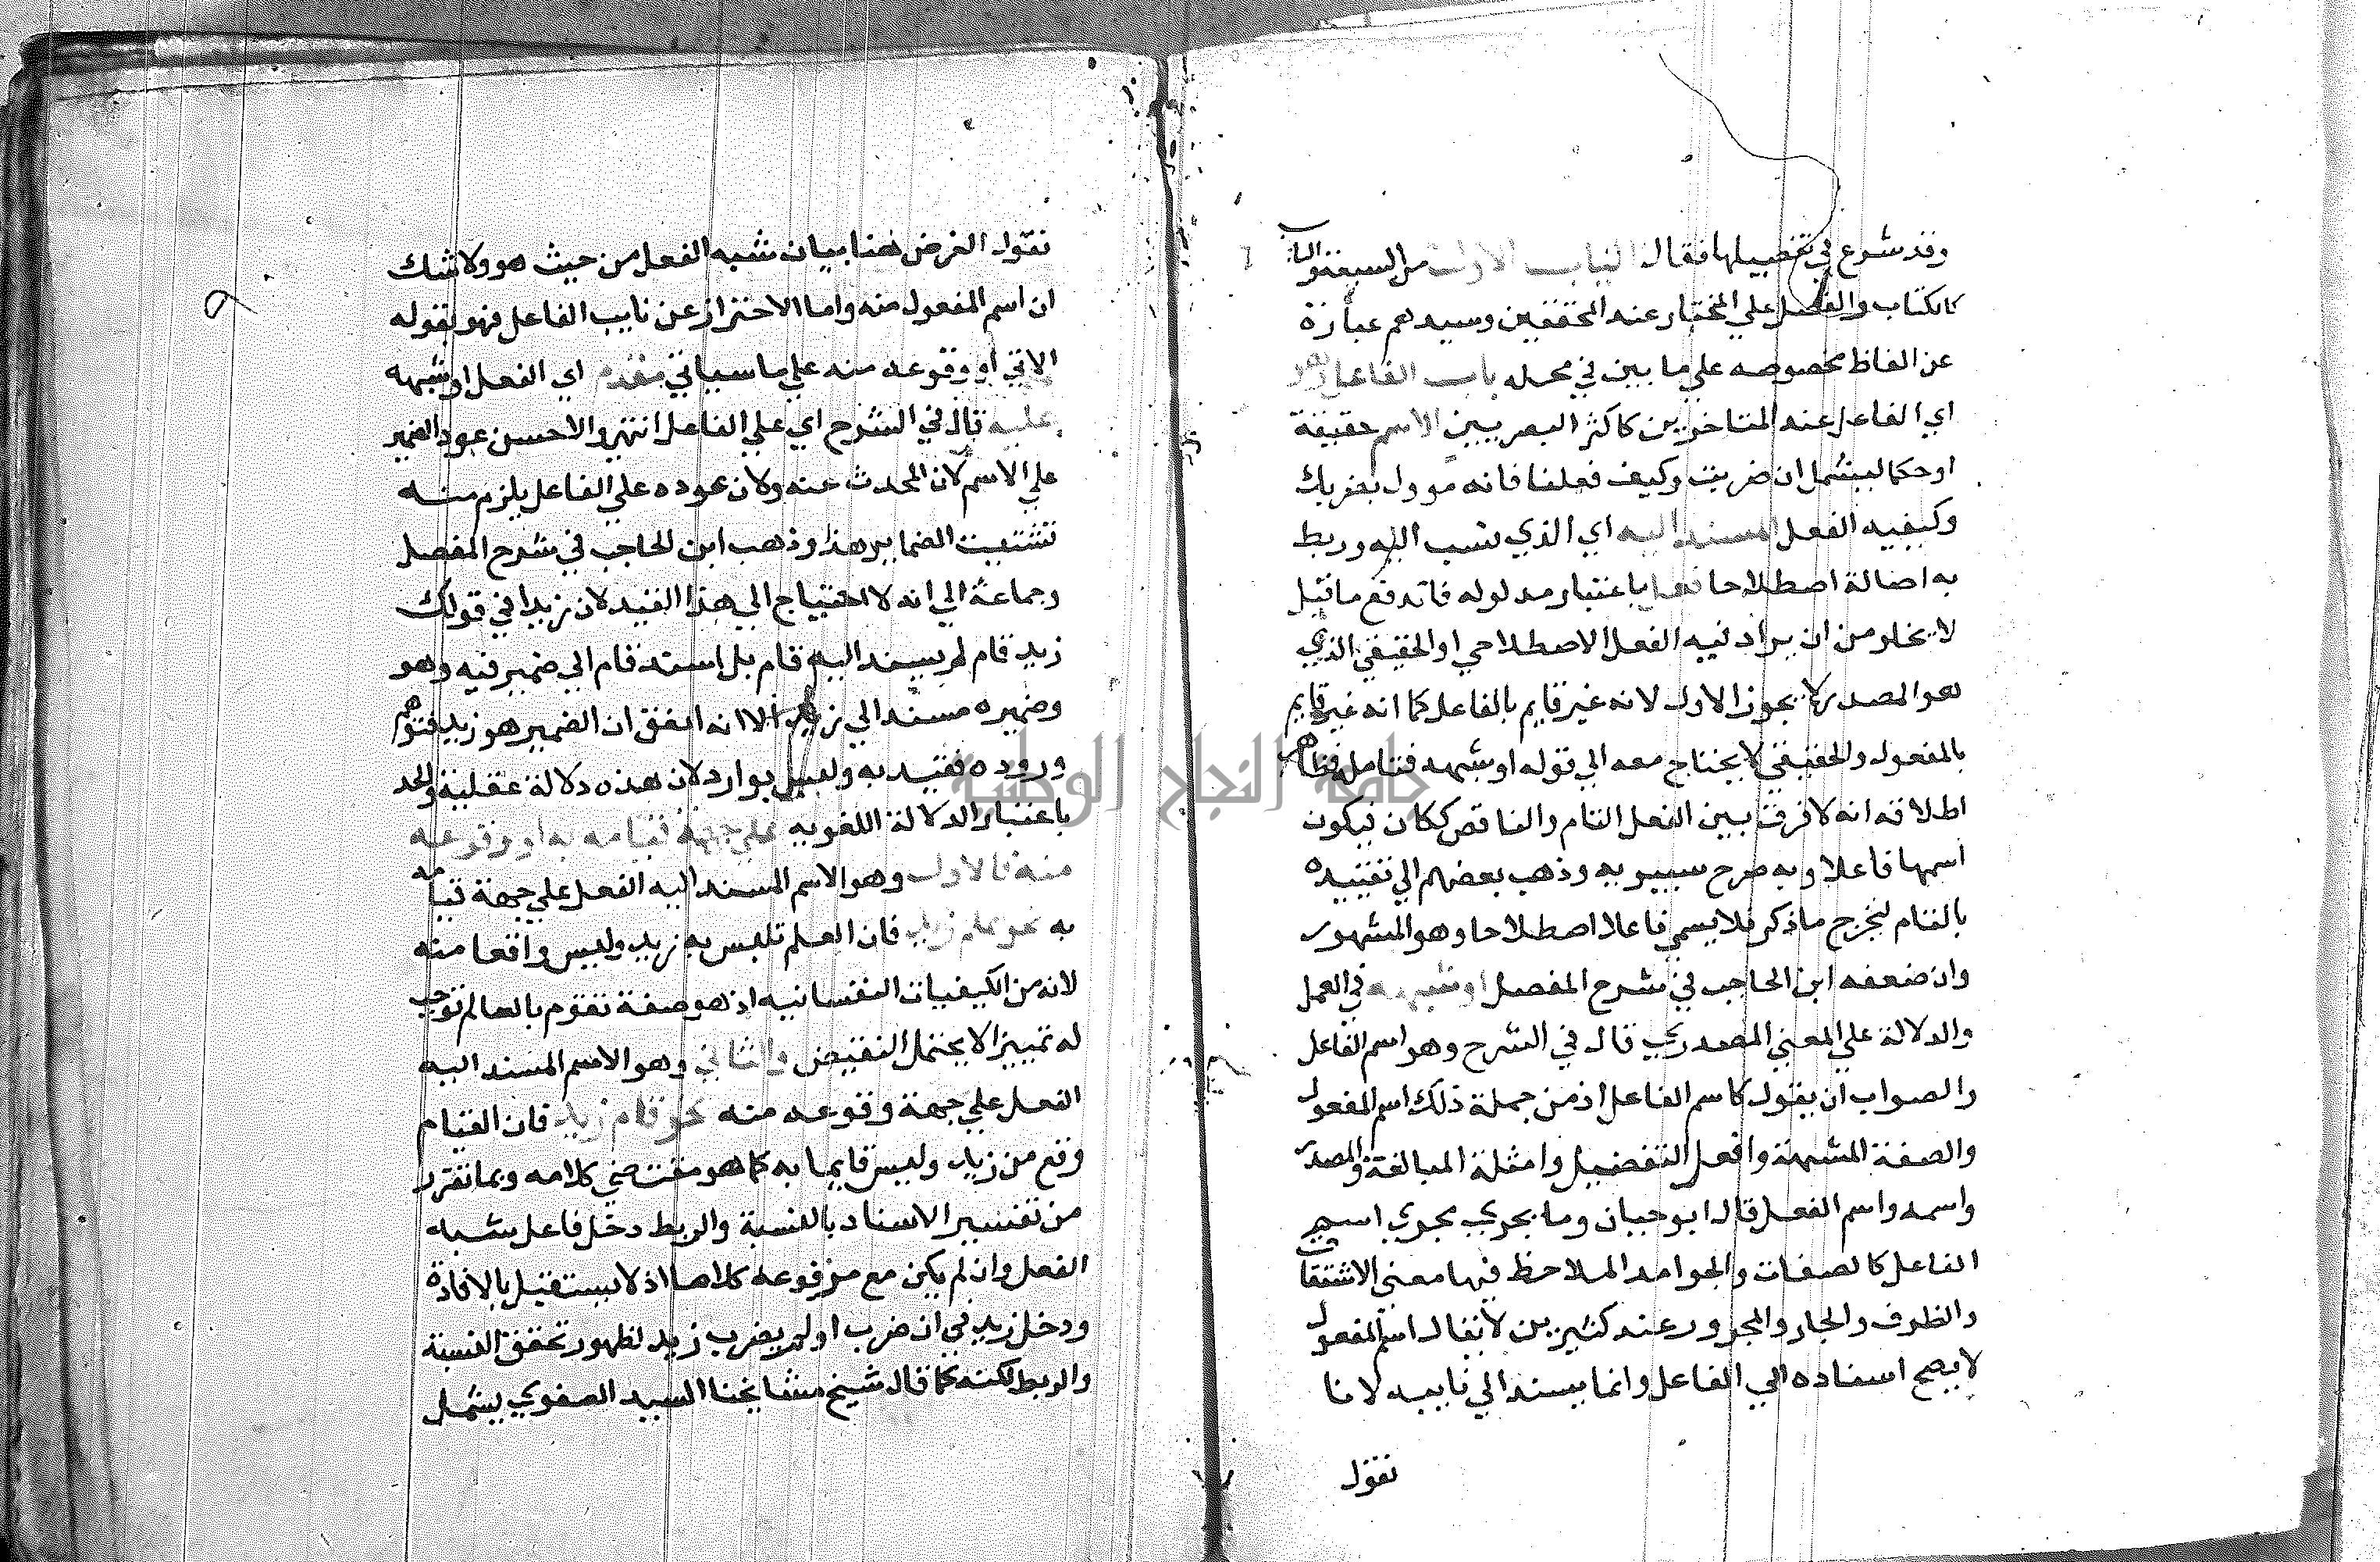 وقد شرع في تفصيلها فقال الباب الاول من السبعة والباب
كالكتاب والفصل علي المختار عند المحققين وسيدهم عبارة
عن الفاظ مخصوصه علي ما بين في محله باب الفاعل وهو
اي الفاعل عند المتاخرين كاكثر البصريين الاسم حقيقة
او حكما ليشمل ان ضربت وكيف فعلنا فانه موول بضربك
وكيفيه الفعل المسند اليه اي الذي نسب اليه وربط
به اصالة اصطلاحا فعل باعتبار مدلوله فاندفع ما قيل
لا يخلو من ان يراد فيه الفعل الاصطلاحي او الحقيقي الذي
هو المصدر لا يجوز الاول لانه غير قايم بالفاعل كما انه غير قايم
بالمفعول والحقيقي لا يحتاج معه الي قوله او شبهه فتامل وظاهر
اطلاقه انه لا فرق بين الفعل التام والناقص ككان فيكون
اسمها فاعلا وبه صرح سيبويه وذهب بعضهم الي تقييده
بالتام ليخرج ما ذكر فلا يسمي فاعلا اصطلاحا وهو المشهور
وان ضعفه ابن الحاجب في شرح المفصل او شبهه في العمل
والدلالة علي المعني المصدري قال في الشرح وهو اسم الفاعل
والصواب ان يقول كاسم الفاعل اذ من جملة ذلك اسم المفعول
والصفة المشبهة وافعل التفضيل وامثلة المبالغة والمصدر
واسمه واسم الفعل قال ابو حيان وما يجري مجري اسم
الفاعل كالصفات والجوامد الملاحظ فيها معني الاشتقاق
والظرف والجار والمجرور عند كثيرين لا يقال اسم المفعول
لا يصح اسناده الي الفاعل وانما يسند الي نايبه لانا
نقول
نقول الغرض هنا بيان شبه الفعل من حيث هو ولا شك
ان اسم المفعول منه واما الاحتراز عن نايب الفاعل فهو بقوله
الاتي او وقوعه منه علي ما سياتي مقدم اي الفعل او شبهه
عليه قال في الشرح اي علي الفاعل انتهي والاحسن عود الضمير
علي الاسم لان المحدث عنه ولان عوده علي الفاعل يلزم منه
تشتيت الضماير هذا وذهب ابن الحاجب في شرح المفصل
وجماعة الي انه لا احتياج الي هذا القيد لان زيدا في قولك
زيد قام لم يسند اليه قام بل اسند قام الي ضمير فيه وهو
وضميره مسند الي زيد الا انه اتفق ان الضمير هو زيد فتوهم
وروده فقيد به وليس بوارد لان هذه دلالة عقلية والحد
باعتبار الدلالة اللغويه علي جهة قيامه به او وقوعه
منه فالاول وهو الاسم المسند اليه الفعل علي جهة قيامه
به نحو علم زيد فان العلم تلبس به زيد وليس واقعا منه
لانه من الكيفيات النفسانيه اذ هو صفة تقوم بالعالم توجب
له تمييزا لا يحتمل النقيض والثاني وهو الاسم المسند اليه
الفعل علي جهة وقوعه منه نحو قام زيد فان القيام
وقع من زيد وليس قايما به كما هو مقتضي كلامه وبما تقرر
من تفسير الاسناد بالنسبة والربط دخل فاعل شبه
الفعل وان لم يكن مع مرفوعه كلاما اذ لا يستقيل بالافادة
ودخل زيد في ان ضرب او لم يضرب زيد لظهور تحقق النسبة
والربط لكنه كما قال شيخ مشايخنا السيد الصفوي يشمل
جامعة النجاح الوطنية